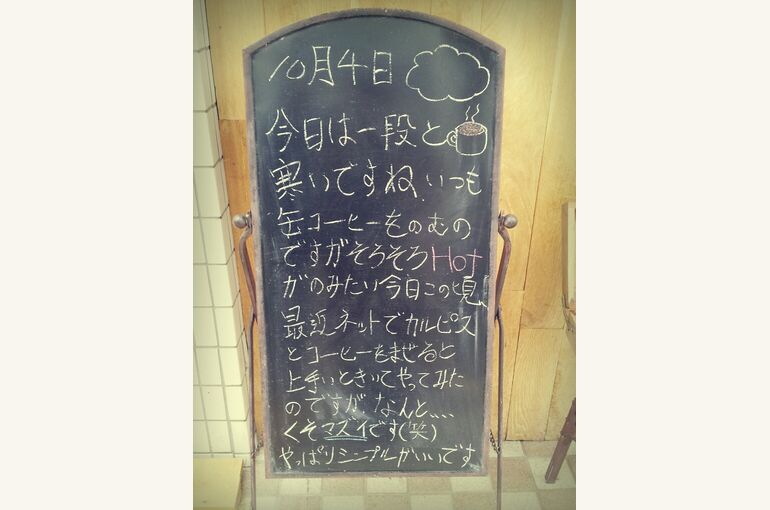 10月4日
今日は一段と
寒いですね。いつも
缶コーヒーをのむの
ですがそろそろHot
がのみたい今日この頃。
最近ネットでカルピス
とコーヒーをまぜると
上手いときいてやってみた
のですが、なんと、、、、
くそマズイです(笑)
やっぱりシンプルがいいです